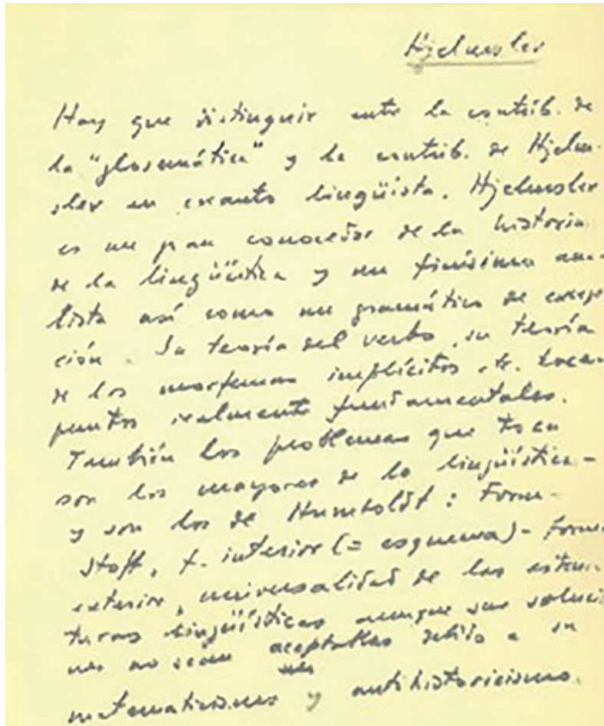 Hjelmslev
Hay que distinguir entre la contrib. de
la "glosemática" y la contrib. de Hjelm-
slev en cuanto lingüista. Hjelmslev
es un gran conocedor de la historia
de la lingüística y un finísimo ana-
lista así como un gramático de excep-
ción. Su teoría del verbo, su teoría
de los morfemas implícitos etc. tocan
puntos realmente fundamentales.
También los problemas que toca
son los mayores de la lingüística -
y son los de Humboldt: Form-
Stoff, f. interior (= esquema) - forma
exterior, universalidad de las estruc-
turas lingüísticas aunque sus solucio
nes no sean aceptables debido a su
matematicismo y antihistoricismo.